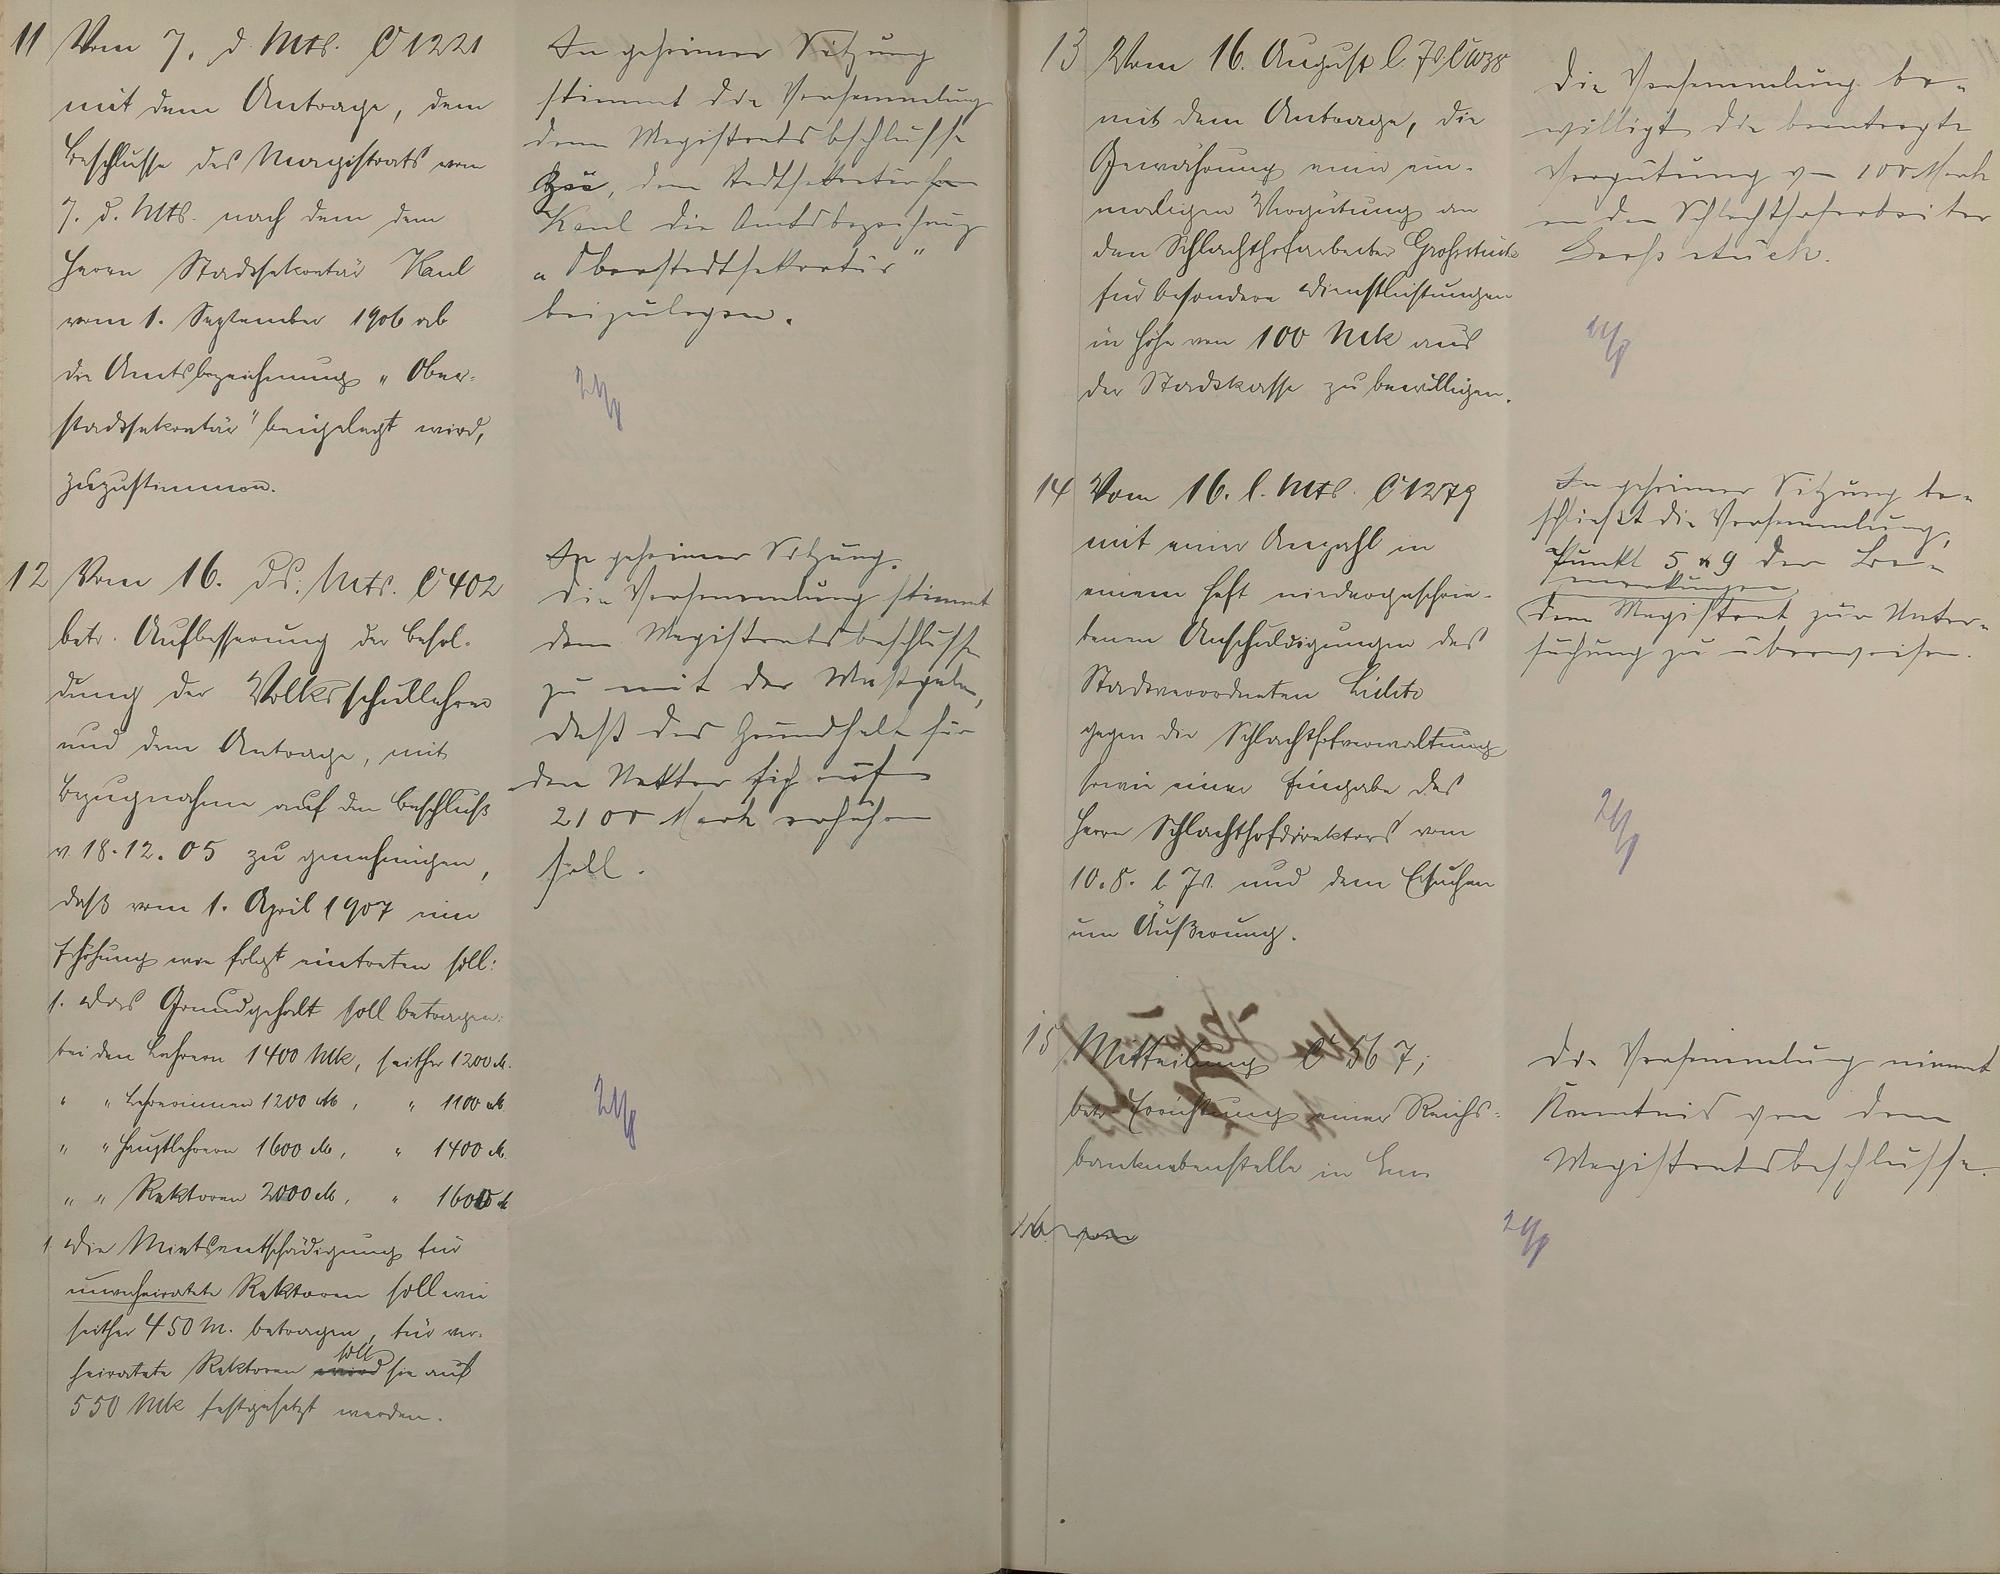 11 Vom 7. d. Mts. C 1221
mit dem Antrage, dem
Beschlusse des Magistrats vom
7. d. Mts. nach dem dem
Herrn Stadtsekretär Kaul
vom 1. September 1906 ab
die Amtsbezeichnung „Ober-
stadtsekretär" beigelegt wird,
zuzustimmen.
In geheimer Sitzung
stimmt die Versammlung
dem Magistratsbeschlusse
zu, dem Stadtsekretär
Kaul die Amtsbezeichnung
„Oberstadtsekretär"
beizulegen.
12 Vom 16. ds. Mts. C 402
betr. Aufbesserung der Besol-
dung der Volksschullehrer
und dem Antrage, mit
Bezugnahme auf den Beschluß
v. 18.12.05 zu genehmigen,
daß vom 1. April 1907 eine
Erhöhung wie folgt eintreten soll:
1. Das Grundgehalt soll betragen:
bei den Lehrern 1400 Mk, seither 1200 M.
" " Lehrerinnen 1200 M, " 1100 M.
" " Hauptlehrern 1600 M, " 1400 M.
" " Rektoren 2000 M, " 1600 M
Die Mietsentschädigung für
unverheiratete Rektoren soll wie
seither 450 M. betragen, für ver-
heiratete Rektoren soll sie auf
550 Mk festgesetzt werden.
In geheimer Sitzung.
Die Versammlung stimmt
dem Magistratsbeschlusse
zu mit der Maßgabe,
daß das Grundhalt für
den Rektor sich auf
2100 Mark erhöhen
soll.
13 Vom 16. August l. Js.
mit dem Antrage, die
Gewährung einer ein-
maligen Vergütung an
den Schlachthofarbeiter Großstück
für besondere Dienstleistungen
in Höhe von 100 Mk aus
der Stadtkasse zu bewilligen.
Die Versammlung be-
willigt die beantragte
Vergütung von 100 Mark
an den Schlachthofarbeiter
Großstück.
14 Vom 16. l. Mts. C 1279
mit einer Anzahl in
einem Heft niedergeschrie-
benen Anschuldigungen des
Stadtverordneten
gegen die Schlachthofverwaltung
sowie einer Eingabe des
Herrn Schlachthofdirektors vom
10.8. l. Js. und dem Ersuchen
um Äußerung.
In geheimer Sitzung be-
schließt die Versammlung,
Punkt 5 & 9 der Be-
merkungen
dem Magistrat zur Unter-
suchung zu überweisen.
15 Mitteilung C 567,
betr. Errichtung einer Reichs-
banknebenstelle in Ems
Die Versammlung nimmt
Kenntnis von dem
Magistratsbeschlusse.
16. vom